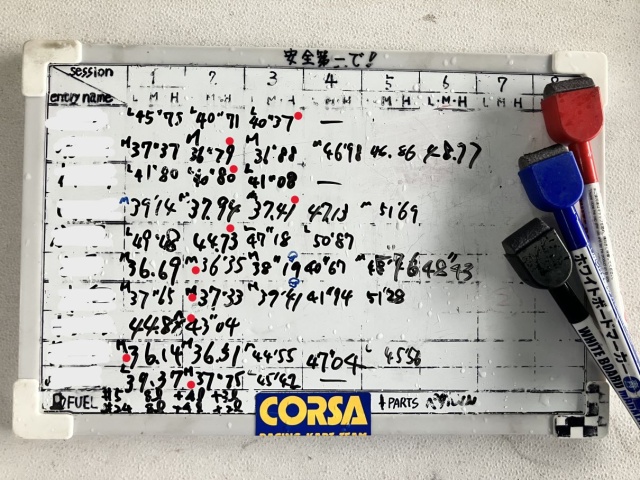 安全第一で!!
session 1 2 3 4 5 6 7 8
entry name L M H L M H L M H L M H L M H L M H L M H
L45"75 L40"71 L40"37 —
M37"37 M36"79 M31"88 M46"98 46.86
L41"80 L40"80 L41"08 —
M39'14 M37.94 M37.41 47.13 M51'69
L49"48 L44.73 L47"18 L50"87
M36.69 M36"35 M38"19 40"67
M37"65 M37"33 M37"41 41"94 51"28
43"04
M36.14 M36.31 44"55 47"04 L45'56
L39.37 M37"75 L45'42 —
FUEL #5 8ℓ +4ℓ +3ℓ
#24 8ℓ +4ℓ +2ℓ
CORSA
RACING KART TEAM
PARTS
ホワイトボードマーカー
WHITE BOARD